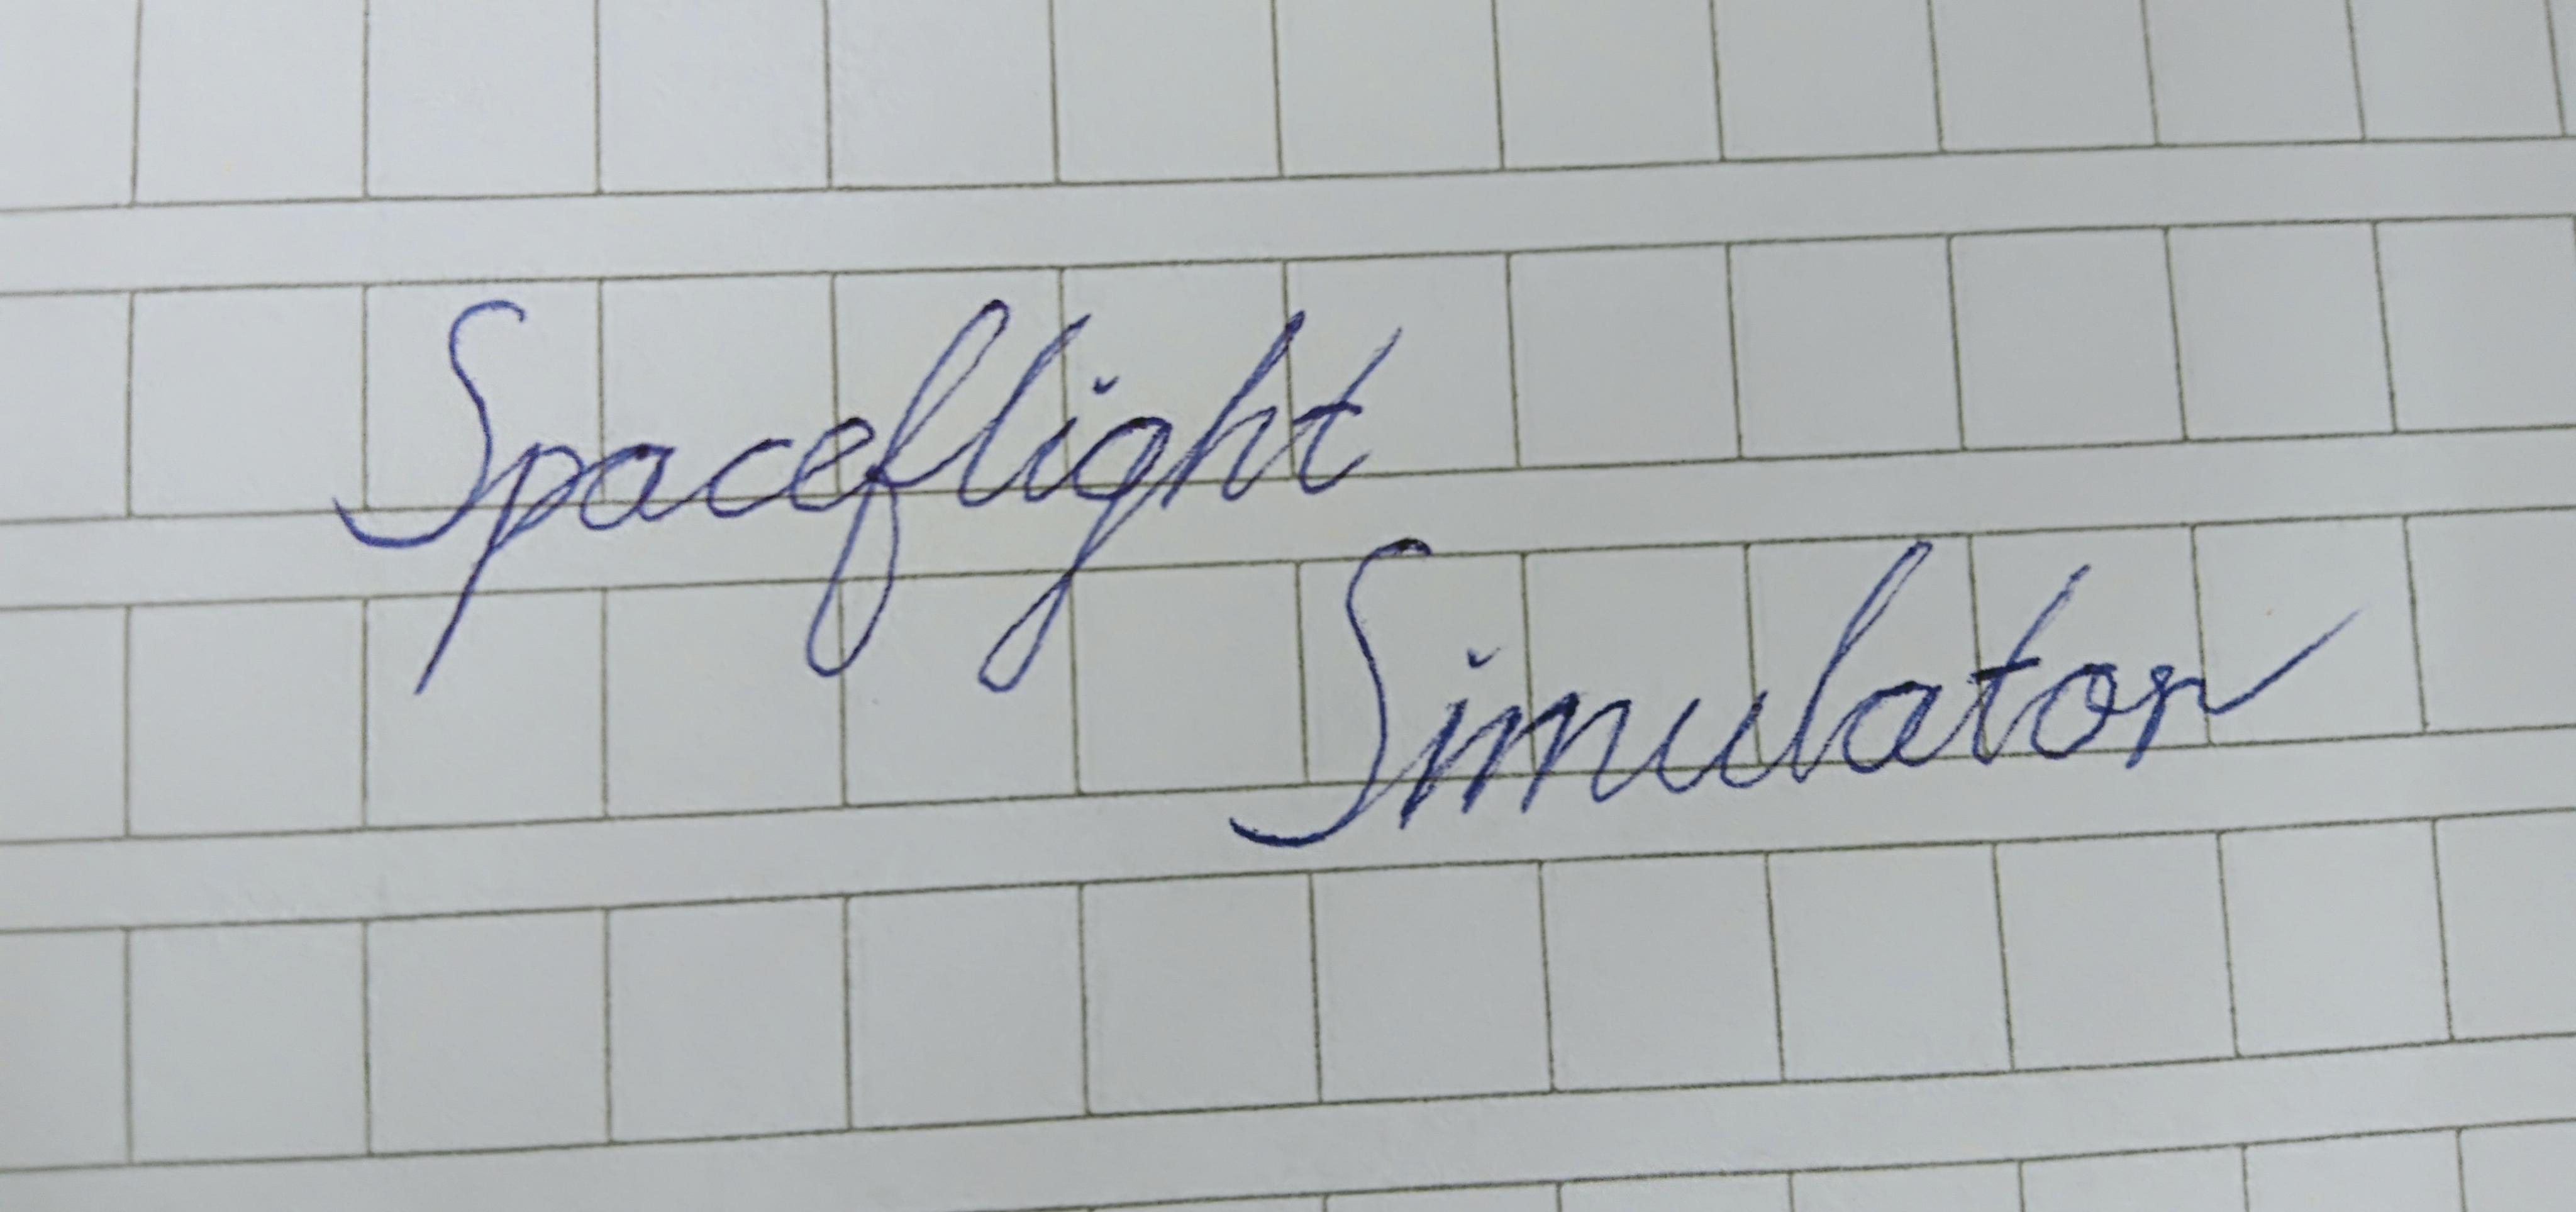 Spaceflight
Simulator